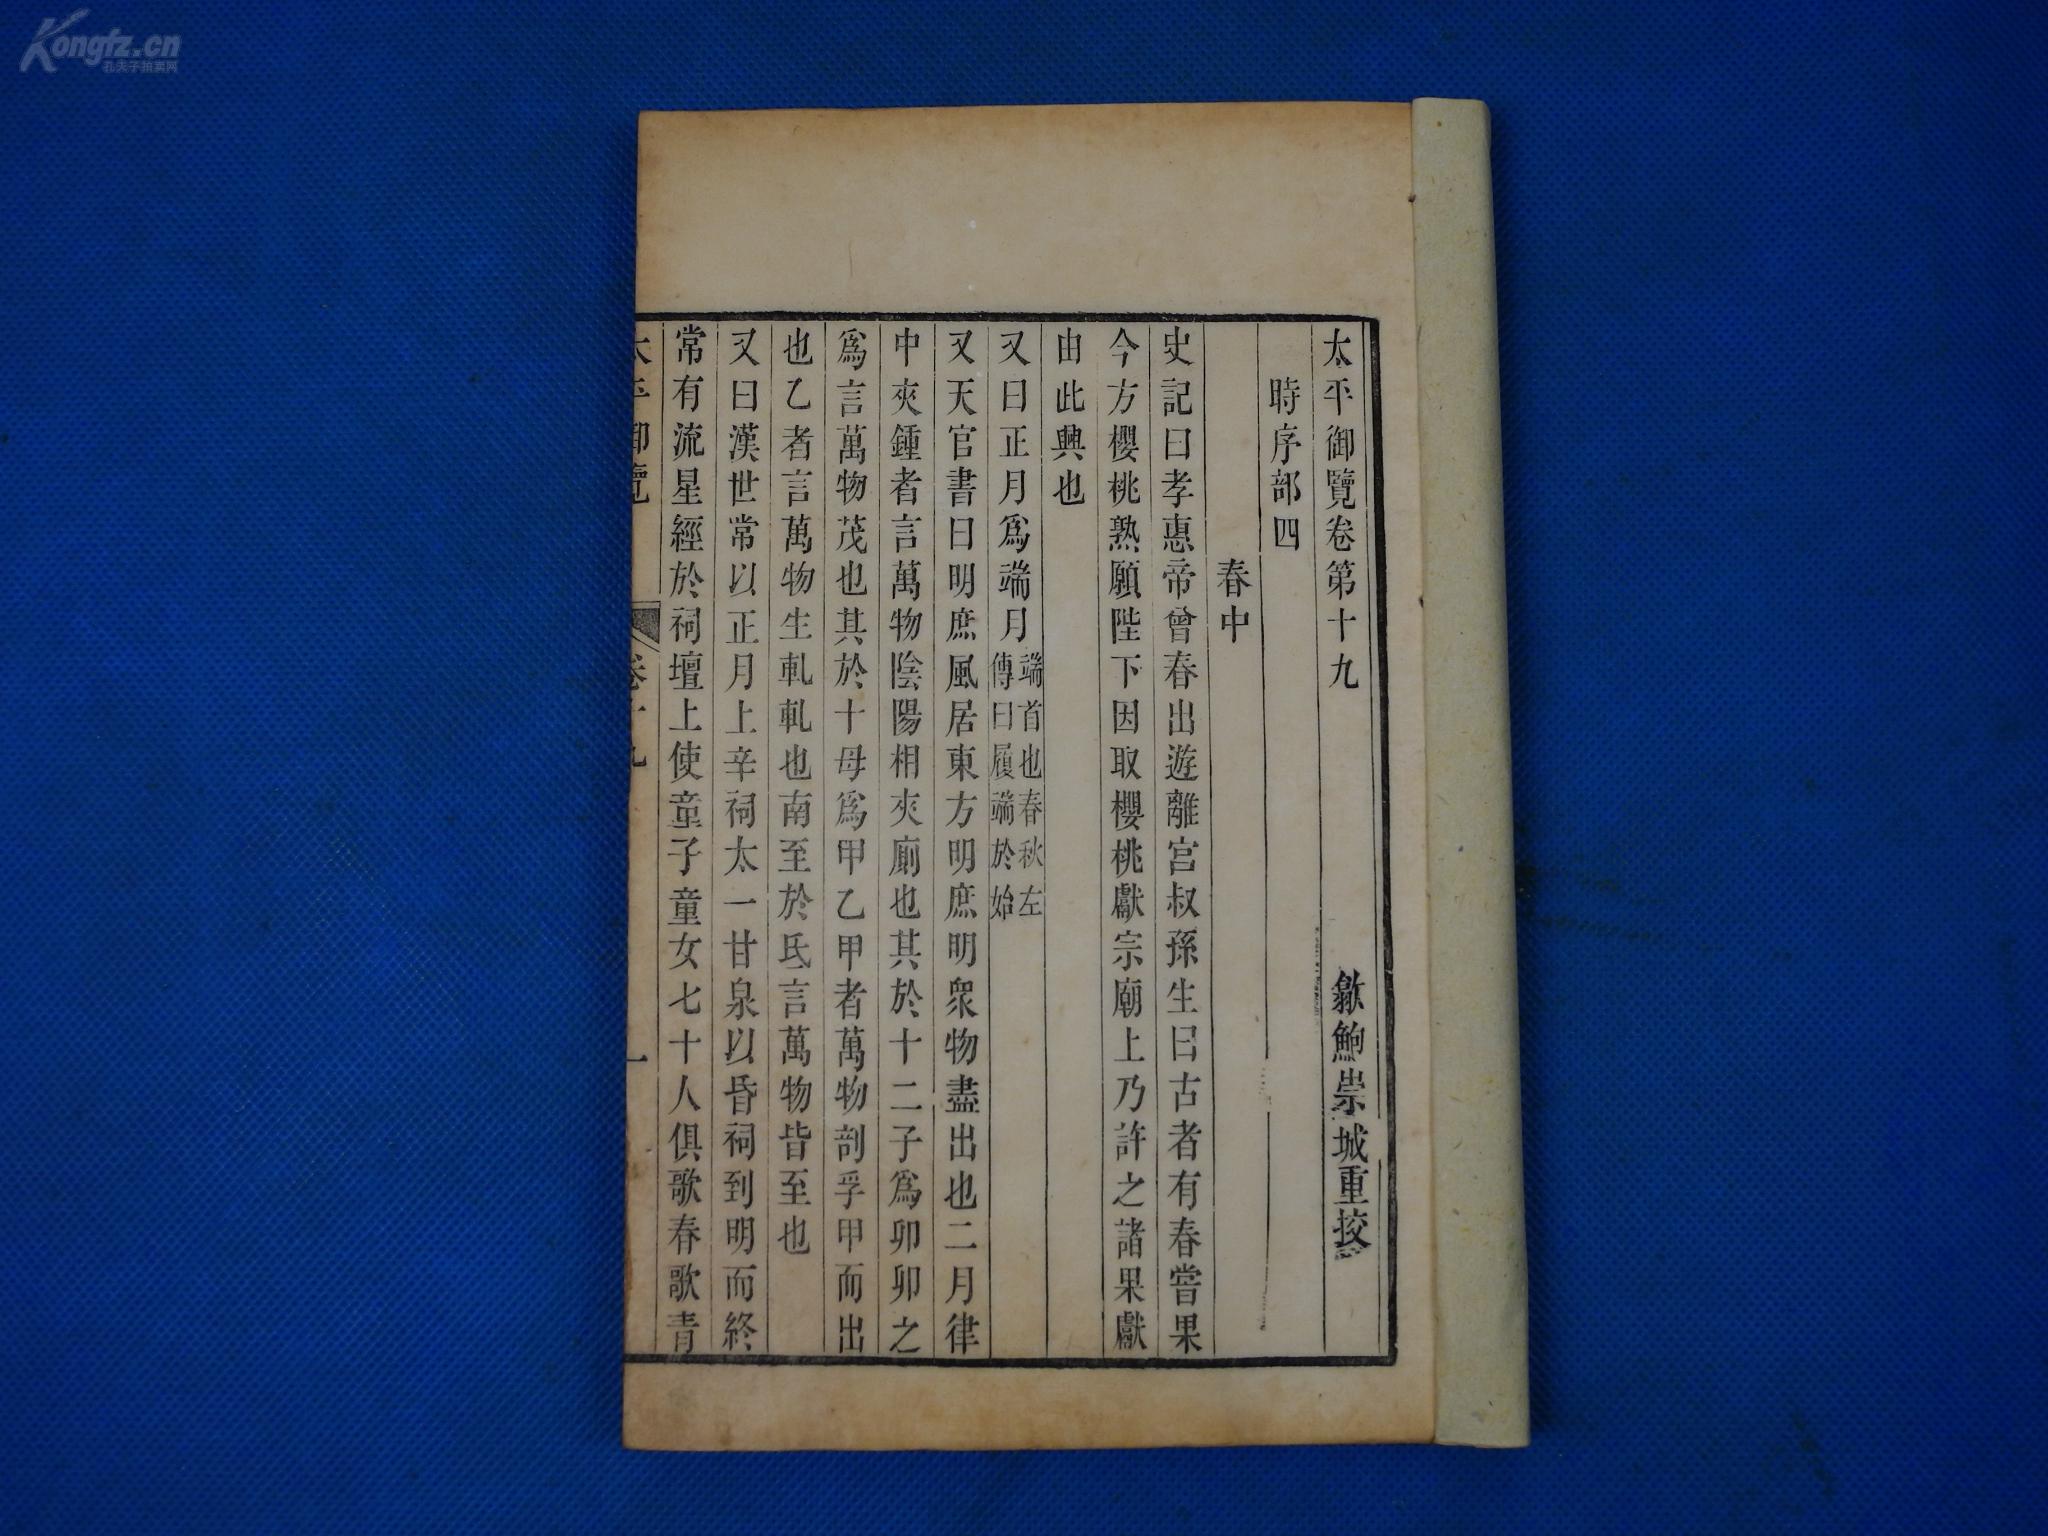 Kongfz.cn
孔夫子拍卖网
太平御覽卷第十九
歙鮑崇城重挍
時序部四
春中
史記曰孝惠帝曾春出遊離宮叔孫生曰古者有春嘗果
今方櫻桃熟願陛下因取櫻桃獻宗廟上乃許之諸果獻
由此興也
又曰正月爲端月端首也春秋左傳曰履端於始
又天官書曰明庶風居東方明庶明衆物盡出也二月律
中夾鍾者言萬物陰陽相夾廁也其於十二子爲卯卯之
爲言萬物茂也其於十母爲甲乙甲者萬物剖孚甲而出
也乙者言萬物生軋軋也南至於氐言萬物皆至也
又曰漢世常以正月上辛祠太一甘泉以昏祠到明而終
常有流星經於祠壇上使童子童女七十人俱歌春歌青
太平御覽 卷十九 一